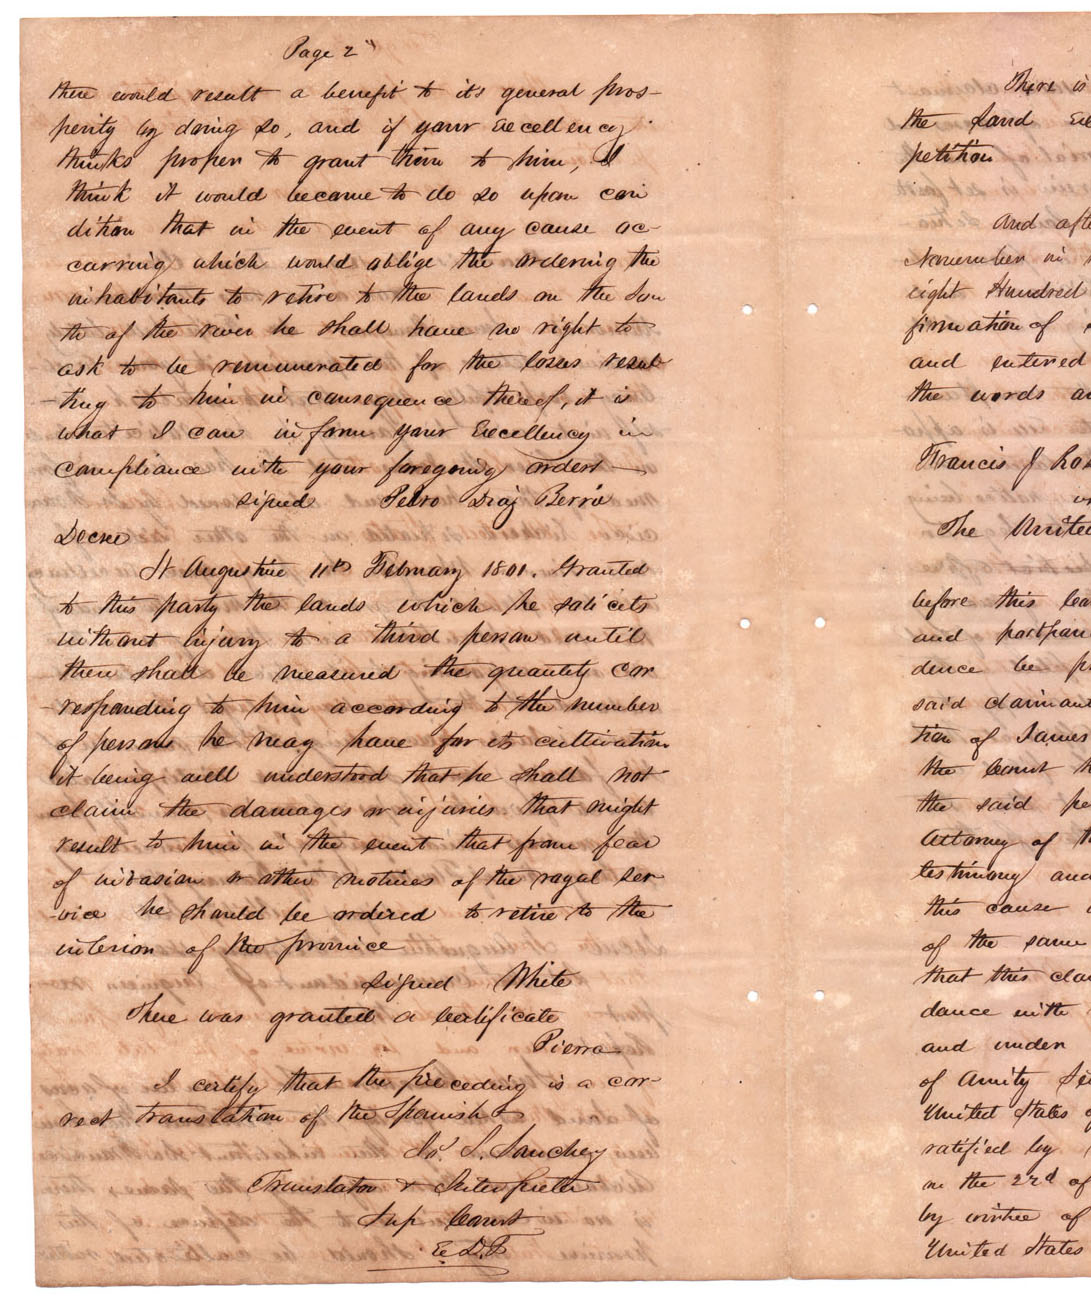 Page 2"
there would result a benefit to it's general pros-
perity by doing so, and if your Excellency
thinks proper to grant them to him, I
think it would become to do so upon con
dition that in the event of any cause oc-
curring which would oblige the ordering the
inhabitants to retire to the lands on the Sou
th of the river he shall have no right to
ask to be remunerated for the losses resul-
-ting to him in consequence thereof, it is
what I can inform your Excellency in
compliance with your foregoing orders
signed Pedro Diaz Berrio
Decree
St Augustine 11th February 1801. Granted
to this party the lands which he solicits
without injury to a third person until
then shall be measured the quantity cor
-responding to him according to the number
of persons he may have for its cultivation
it being well understood that he shall not
claim the damages or injuries that might
result to him in the event that from fear
of invasion or other motives of the royal ser-
-vice he should be ordered to retire to the
interior of the province
signed White
There was granted a Certificate
Pierra
I certify that the preceding is a cor-
rect translation of the Spanish
Jos S. Sanchez
Translator & Interpreter
Sup Court
E. D. F
There is
the Land
petition
And afte
November in
eight Hundred
firmation of
and entered
the words
Francis J
The United
before this
and postpon
dence be
said claimant
tion of James
the Court
the said pe
Attorney of th
testimony and
this cause
of the same
that this cla
dance with
and under
of Amity Se
United States
ratified by
on the 22d of
by virtue of
United States